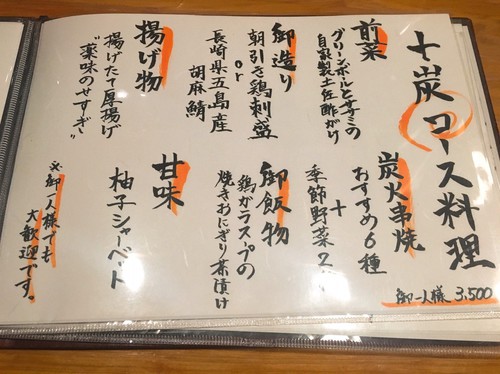 十炭コース料理
前菜
グリーンボールとささみの
自家製土佐酢がけ
御造り
朝引き鶏刺し盛
or
長崎県五島産
胡麻鯖
揚げ物
揚げたて厚揚げ
"薬味のせすぎ"
炭火串焼
おすすめ6種
+
季節野菜2
御飯物
鶏ガラスープの
焼きおにぎり茶漬け
甘味
柚子シャーベット
御一人様 3,500
※御一人様でも
大歓迎です。